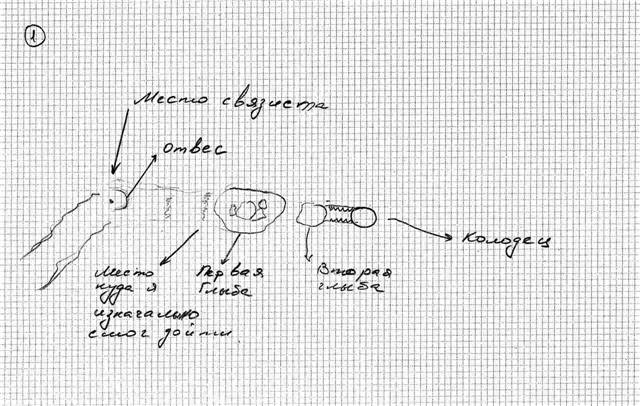 1
Место связиста
отвес
Колодец
Место
куда я
изначально
смог дойти
Первая
Глыба
Вторая
глыба